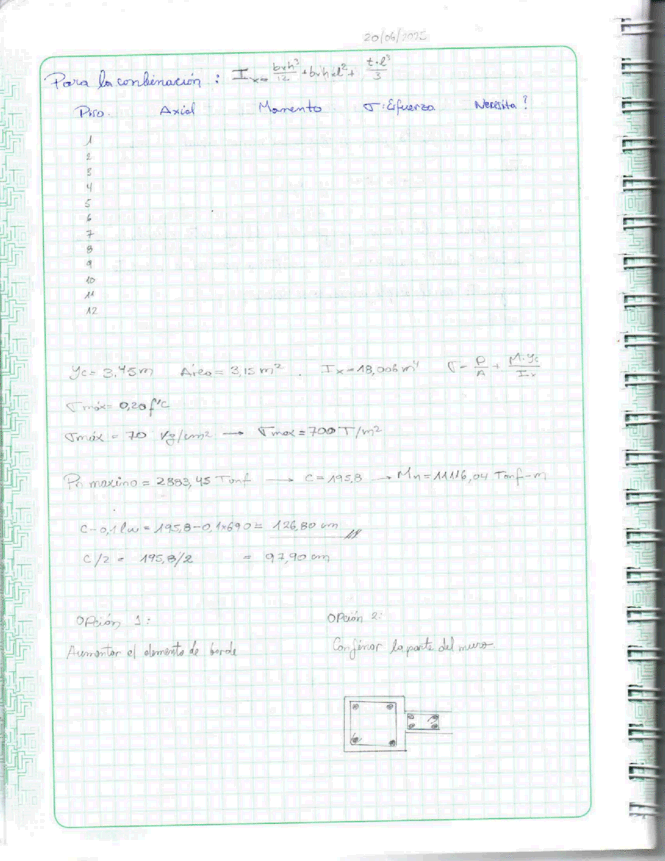 20/06/2025
Para la combinación : Ix = b×h³/12 + b×h×d² + t×l³/3
Piso. Axial Momento σ: Esfuerzo Necesita?
1
2
3
4
5
6
7
8
9
10
11
12
yc = 3,45m Área = 3,15 m² . Ix = 18,006 m⁴ σ = P/A + M·yc/Ix
σmáx = 0,20 f'c
σmáx = 70 Kg/cm² → σmax = 700 T/m²
Pn maximo = 2883,45 Tonf → C = 195,8 → Mn = 11116,04 Tonf-m
C - 0,1 lw = 195,8 - 0,1x690 = 126,80 cm
C/2 = 195,8/2 = 97,90 cm
Opción 1: Opción 2:
Aumentar el elemento de borde Confinar la parte del muro